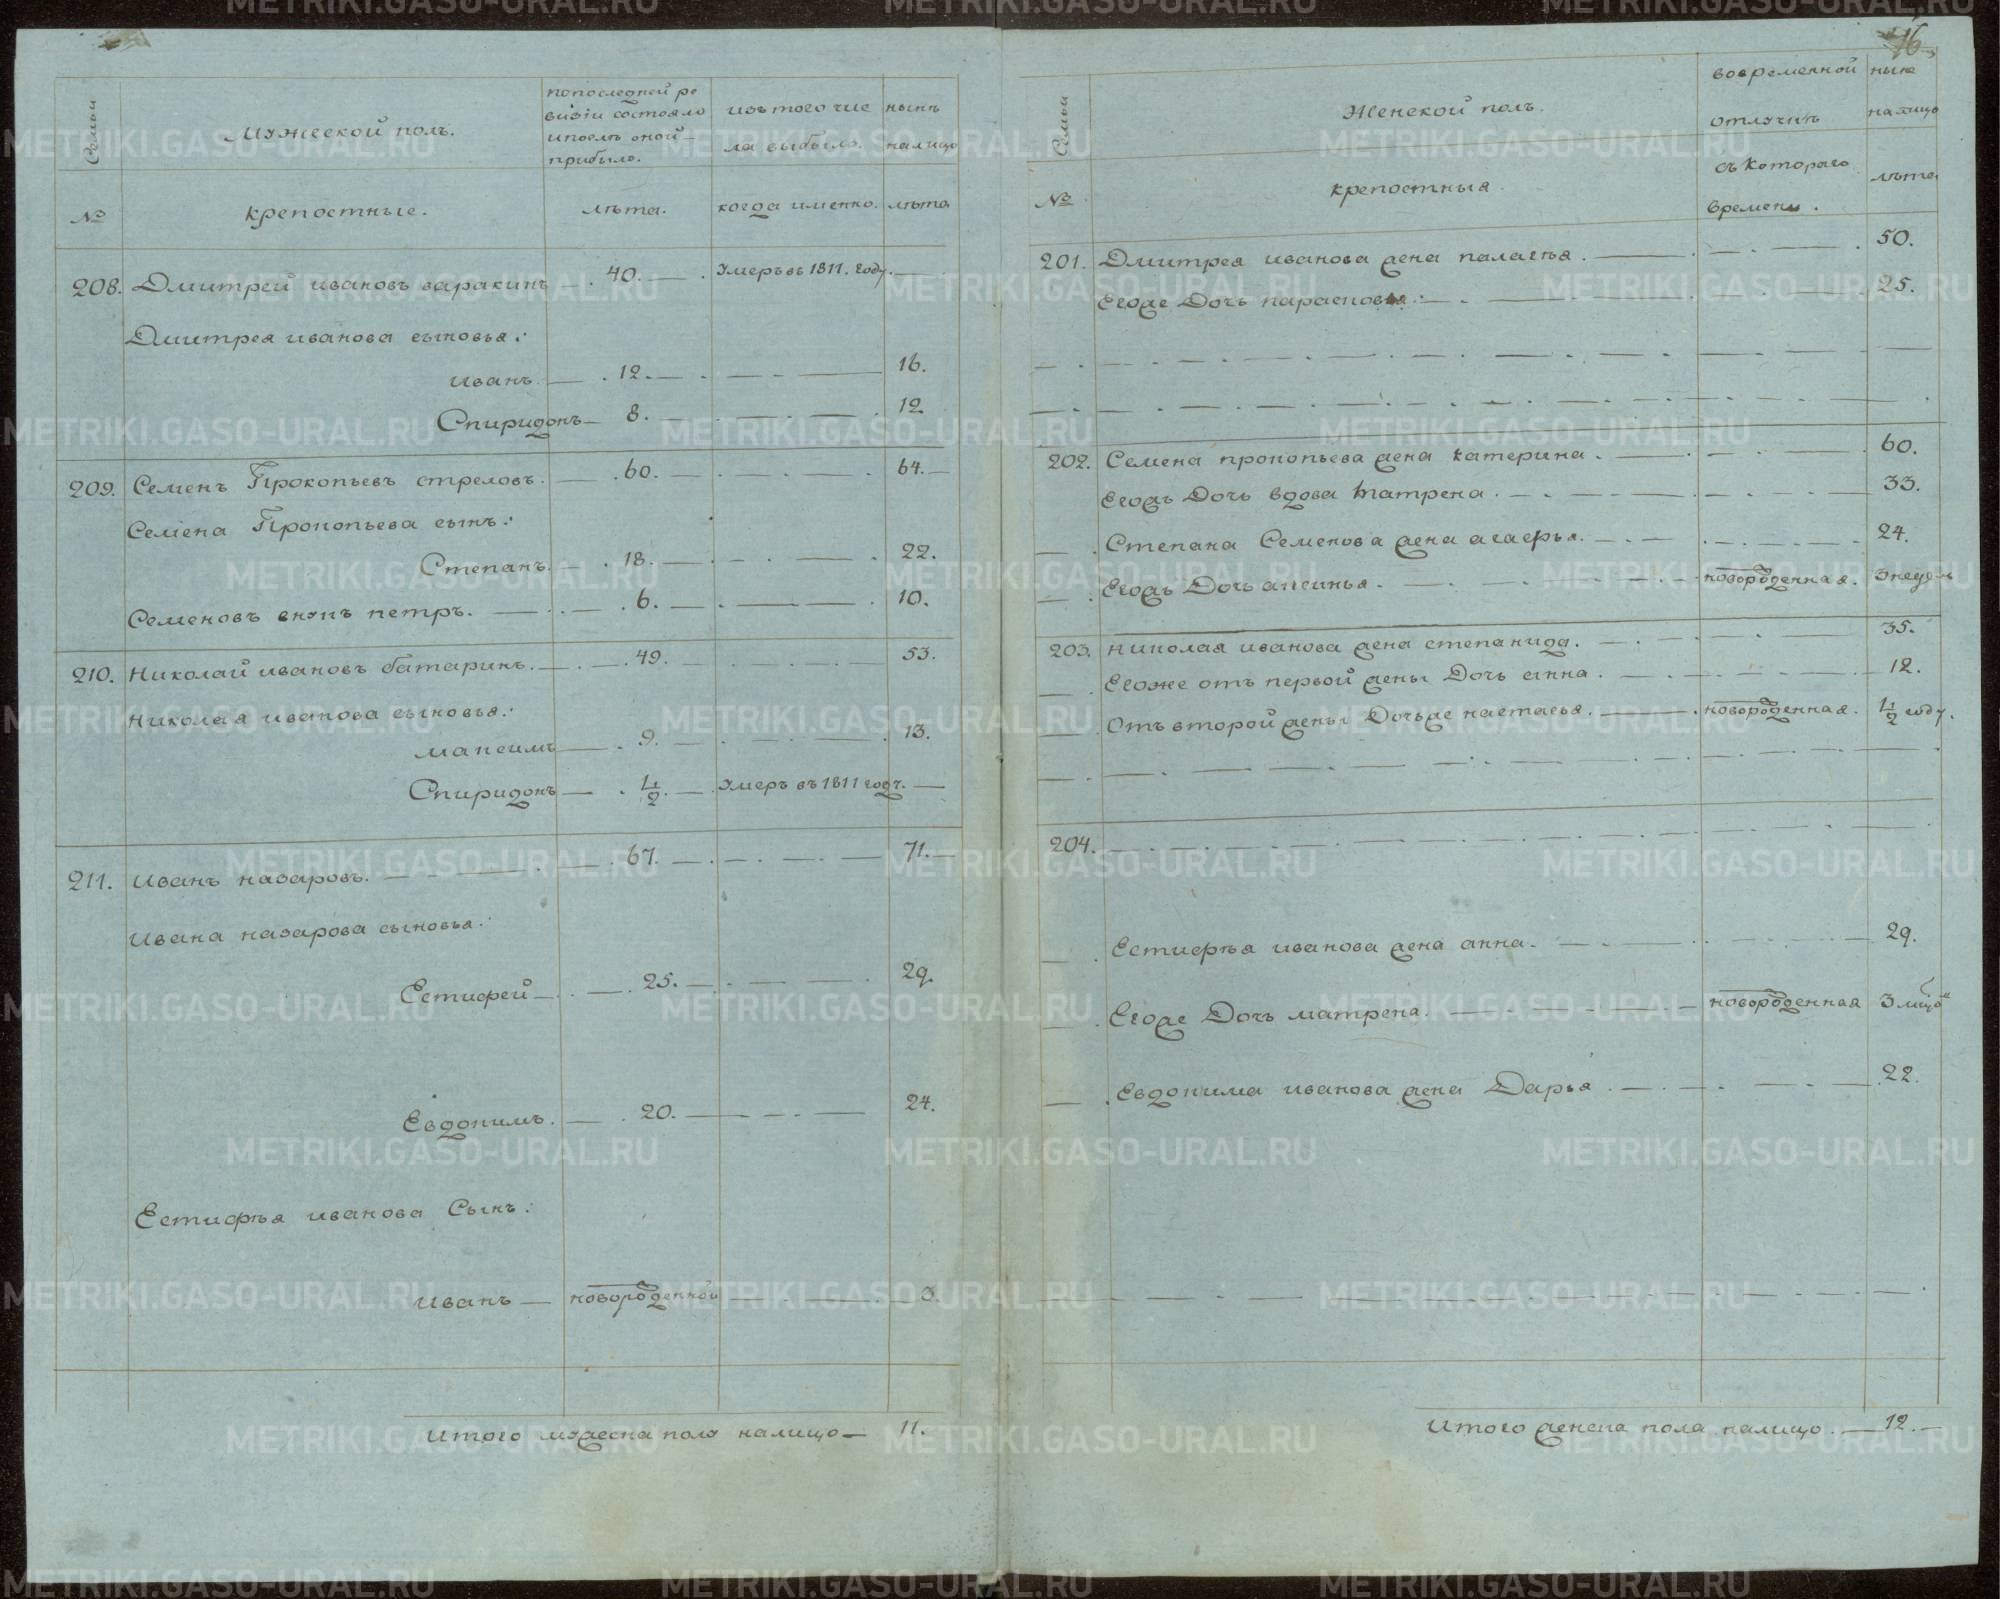 Семьи
№
Мужеской полъ.
крепостные.
попоследней ре
визiи состояло
ипосле оной
прибыло.
лѣта.
изъ того чис
ла выбыло.
когда именно.
нынѣ
налицо
лѣта
208. Дмитрей ивановъ варакинъ — 40. — умеръ въ 1811. году. —
Дмитрея иванова сыновья:
иванъ — 12. — 16.
Спиридонъ — 8. — 12.
209. Семенъ Прокопьевъ стреловъ. — 60. — 64. —
Семена Прокопьева сынъ:
Степанъ. — 18. — 22.
Семеновъ внукъ петръ. — 6. — 10.
210. Николай ивановъ батаринъ. — 49. — 53.
Николая иванова сыновья:
максимъ — 9. — 13.
Спиридонъ — 1/2. — умеръ въ 1811 году. —
211. Иванъ назаровъ. — 67. — 71. —
Ивана назарова сыновья:
Естифей — 25. — 29.
Евдокимъ. — 20. — 24.
Естифѣя иванова Сынъ:
иванъ — новорожденной — 3.
Итого мужеска полу налицо — 11.
76
Семьи
№
Женской полъ.
крепостныя.
вовременной
отлучкѣ
съ котораго
времени.
ныне
налицо
лѣта
201. Дмитрея иванова жена палагѣя. — 50.
Егоже Дочь парасковья. — 25.
202. Семена прокопьева жена катерина. — 60.
Егожъ Дочь вдова матрена. — 33.
Степана Семенова жена агафья. — 24.
Егожъ Дочь аксинья. — новорожденная. 3 недѣль
203. николая иванова жена степанида. — 35.
Егоже отъ первой жены Дочь анна. — 12.
Отъ второй жены Дочьже настасья. — новорожденная. 1/2 году.
204. —
Естифѣя иванова жена анна. — 29.
Егоже Дочь матрена. — новорожденная 3 мцъ
Евдокима иванова жена Дарья. — 22.
Итого женска пола налицо. — 12. —
METRIKI.GASO-URAL.RU